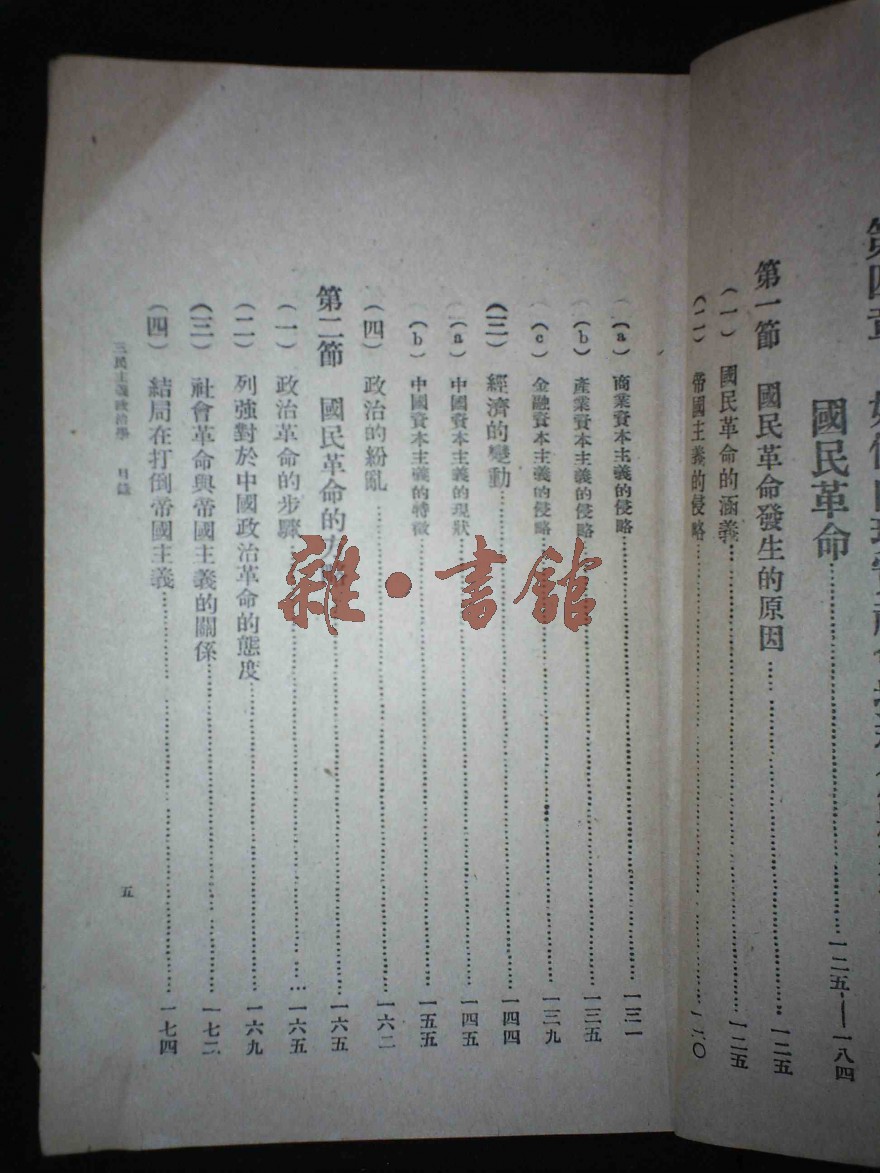 第四章
國民革命……一二五——一八四
第一節 國民革命發生的原因……一二五
（一）國民革命的涵義……一二五
（二）帝國主義的侵略……一三〇
（a）商業資本主義的侵略……一三一
（b）產業資本主義的侵略……一三五
（c）金融資本主義的侵略……一三九
（三）經濟的變動……一四四
（a）中國資本主義的現狀……一四五
（b）中國資本主義的特徵……一五五
（四）政治的紛亂……一六二
第二節 國民革命的……一六五
（一）政治革命的步驟……一六五
（二）列強對於中國政治革命的態度……一六九
（三）社會革命與帝國主義的關係……一七二
（四）結局在打倒帝國主義……一七四
三民主義政治學 目錄
五
雜·書館